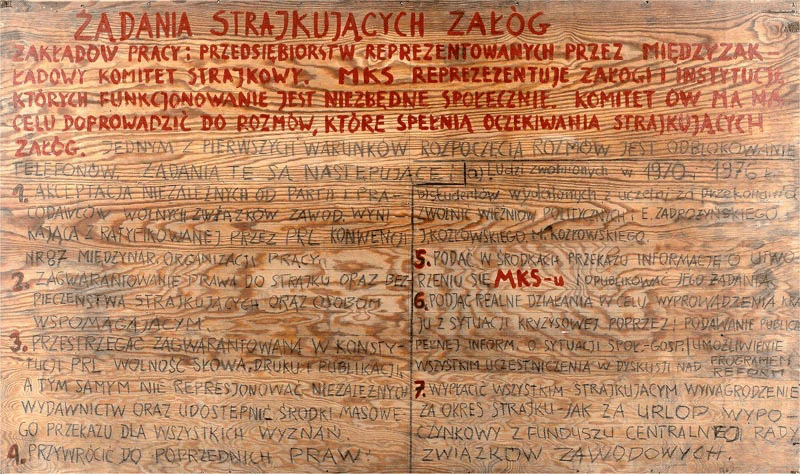 ŻĄDANIA STRAJKUJĄCYCH ZAŁÓG
ZAKŁADÓW PRACY i PRZEDSIĘBIORSTW REPREZENTOWANYCH PRZEZ MIĘDZYZAK-
ŁADOWY KOMITET STRAJKOWY. MKS REPREZEZENTUJE ZAŁOGI I INSTYTUCJE,
KTÓRYCH FUNKCJONOWANIE JEST NIEZBĘDNE SPOŁECZNIE. KOMITET ÓW MA NA
CELU DOPROWADZIĆ DO ROZMÓW, KTÓRE SPEŁNIĄ OCZEKIWANIA STRAJKUJĄCYCH
ZAŁÓG. JEDNYM Z PIERWSZYCH WARUNKÓW ROZPOCZĘCIA ROZMÓW JEST ODBLOKOWANIE
TELEFONÓW. ŻĄDANIA TE SĄ NASTĘPUJĄCE:
1. AKCEPTACJA NIEZALEŻNYCH OD PARTII I PRA-
CODAWCÓW WOLNYCH ZWIĄZKÓW ZAWOD. WYNI-
KAJĄCA Z RATYFIKOWANEJ PRZEZ PRL KONWENCJI
NR 87 MIĘDZYNAR. ORGANIZACJI PRACY.
2. ZAGWARANTOWANIE PRAWA DO STRAJKU ORAZ BEZ-
PIECZEŃSTWA STRAJKUJĄCYCH ORAZ OSOBOM
WSPOMAGAJĄCYM.
3. PRZESTRZEGAĆ ZAGWARANTOWANĄ W KONSTY-
TUCJI PRL WOLNOŚĆ SŁOWA, DRUKU I PUBLIKACJI,
A TYM SAMYM NIE REPRESJONOWAĆ NIEZALEŻNYCH
WYDAWNICTW ORAZ UDOSTĘPNIĆ ŚRODKI MASOWE-
GO PRZEKAZU DLA WSZYSTKICH WYZNAŃ.
4. PRZYWRÓCIĆ DO POPRZEDNICH PRAW:
a) LUDZI ZWOLNIONYCH W 1970 i 1976 r.
b) STUDENTÓW WYDALONYCH z UCZELNI ZA PRZEKONANIA
ZWOLNIĆ WIĘŹNIÓW POLITYCZNYCH: E. ZADROŻYŃSKIEGO,
J. KOZŁOWSKIEGO, M. KOZŁOWSKIEGO.
5. PODAĆ W ŚRODKACH PRZEKAZU INFORMACJĘ O UTWO-
RZENIU SIĘ MKS-u I OPUBLIKOWAĆ JEGO ŻĄDANIA.
6. PODJĄĆ REALNE DZIAŁANIA W CELU WYPROWADZENIA KRA-
JU Z SYTUACJI KRYZYSOWEJ POPRZEZ: PODAWANIE PUBLICZ.
PEŁNEJ INFORM. O SYTUACJI SPOŁ-GOSP. UMOŻLIWIENIE
WSZYSTKIM UCZESTNICZENIA W DYSKUSJI NAD PROGRAMEM
REFORM
7. WYPŁACIĆ WSZYSTKIM STRAJKUJĄCYM WYNAGRODZENIE
ZA OKRES STRAJKU - JAK ZA URLOP WYPO-
CZYNKOWY Z FUNDUSZU CENTRALNEJ RADY
ZWIĄZKÓW ZAWODOWYCH.